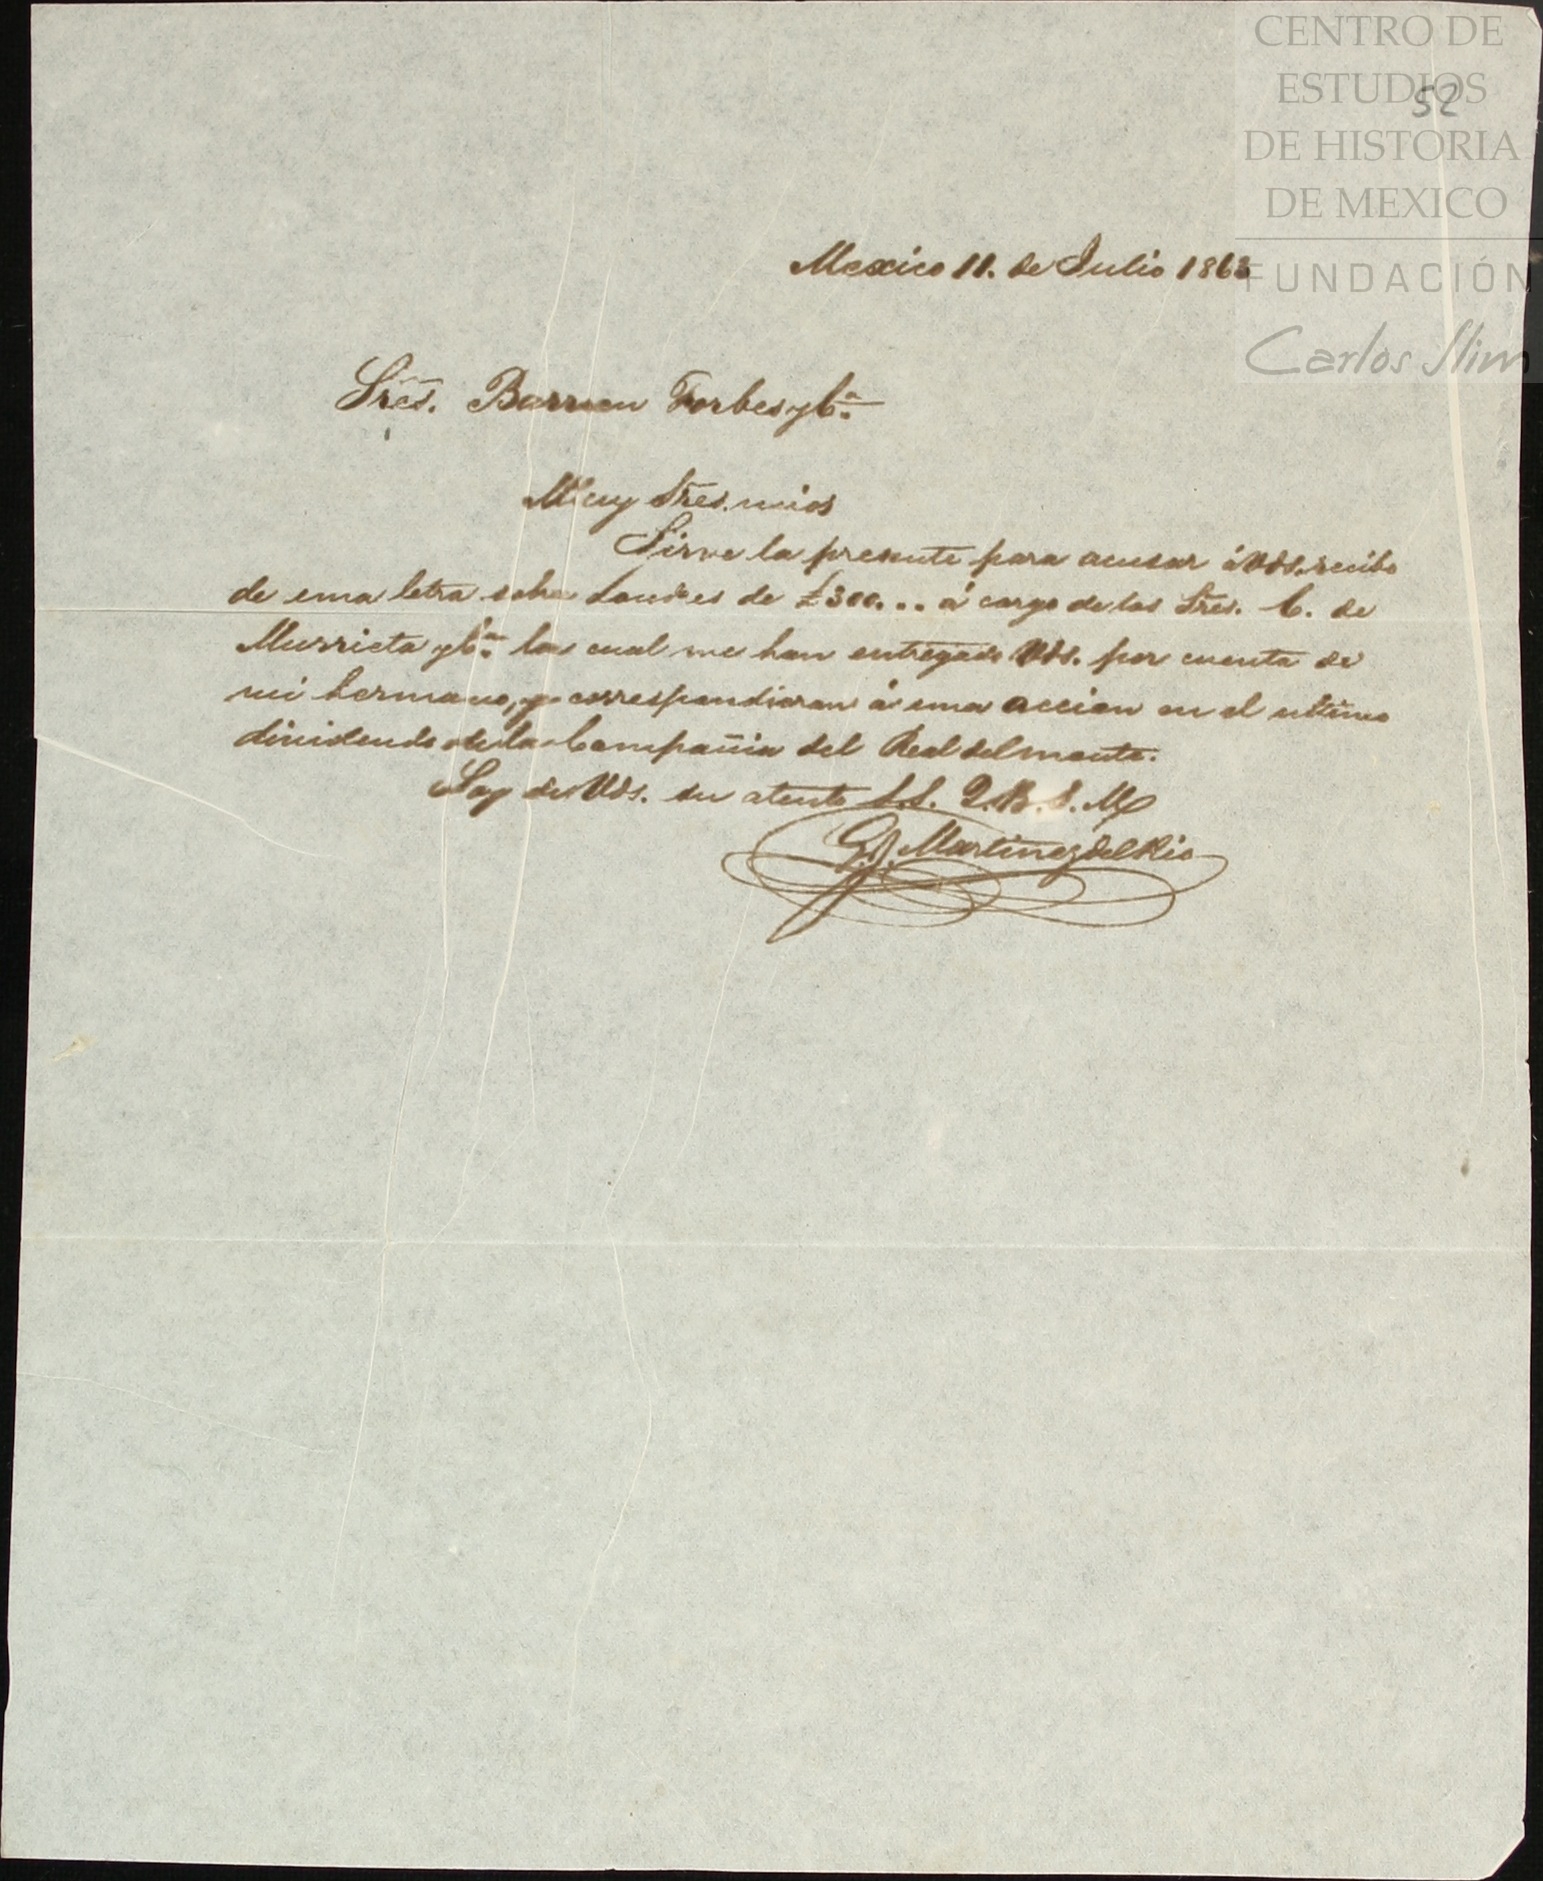 CENTRO DE
ESTUDIOS
DE HISTORIA
DE MEXICO
FUNDACIÓN
Carlos Slim
52
Mexico 11. de Julio 1863
Sres. Barron Forbes y Cª.
Muy Sres. mios
Sirve la presente para acusar á Vds. recibo
de una letra sobre Londres de £300... á cargo de los Sres. C. de
Murrieta y Cª. la cual me han entregado Vds. por cuenta de
mi hermano, y correspondieran á una accion en el ultimo
dividendo de la Compañia del Real del monte.
Soy de Vds. su atento S.S. Q.B.S.M
Martinez del Rio